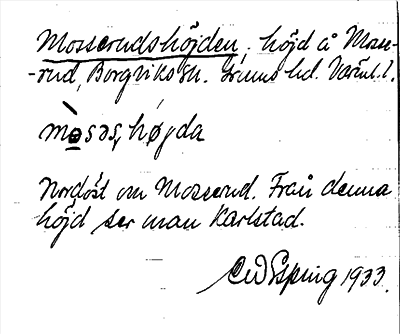 Mosserudshöjden, höjd å Mosse-
-rud, Borgviks sn. Grums hd. Värml. l.
mòsəs, højda
Nordöst om Mosserud. Från denna
höjd ser man Karlstad.
1933.